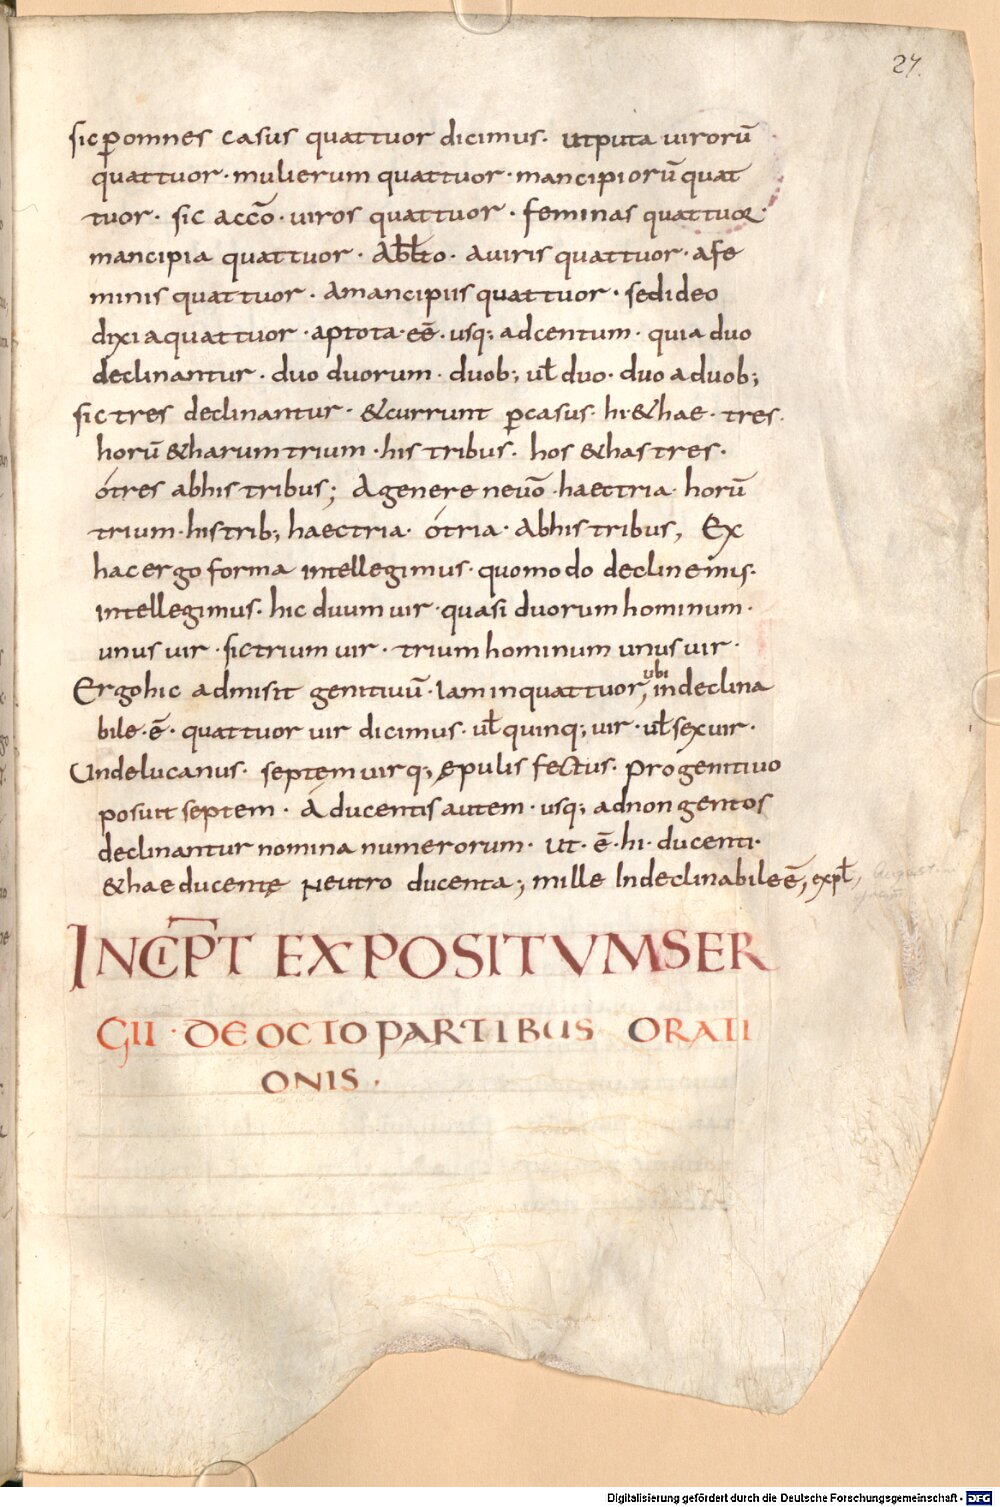 27.
sic ꝑ omnes casus quattuor dicimus. utputa uirorū
quattuor. mulierum quattuor. mancipiorū quat
tuor. sic accō. uiros quattuor. feminas quattuor.
mancipia quattuor. Abłto. auiris quattuor. afe
minis quattuor. amancipiis quattuor. sed ideo
dixi aquattuor. aptota. eē. usq; adcentum. quia duo
declinantur. duo duorum. duob; uł duo. duo aduob;
sic tres declinantur. &currunt ꝑ casus. hi. &hae. tres.
horū &harum trium. his tribus. hos &has tres.
ó tres abhis tribus; Agenere neuō. haec tria. horū
trium. his trib; haec tria. ó tria. abhis tribus, Ex
hac ergo forma intellegimus. quomodo declinemis.
intellegimus. hic duum uir. quasi duorum hominum.
unus uir. sic trium uir. trium hominum unus uir.
Ergo hic admisit genitiuū. Iam inquattuor, ubi indeclina
bile. ē. quattuor uir dicimus. uł quinq; uir. uł sex uir.
Unde lucanus. septem uirq; epulis fectus. Pro genitiuo
posuit septem. Á ducentis autem. usq; adnongentos
declinantur nomina numerorum. Ut. ē. hi. ducenti.
&hae ducentę Neutro ducenta; mille Indeclinabile ē, expł,
INCIPT EXPOSITVM SER
GII. DE OCTO PARTIBUS ORATI
ONIS.
Digitalisierung gefördert durch die Deutsche Forschungsgemeinschaft - DFG